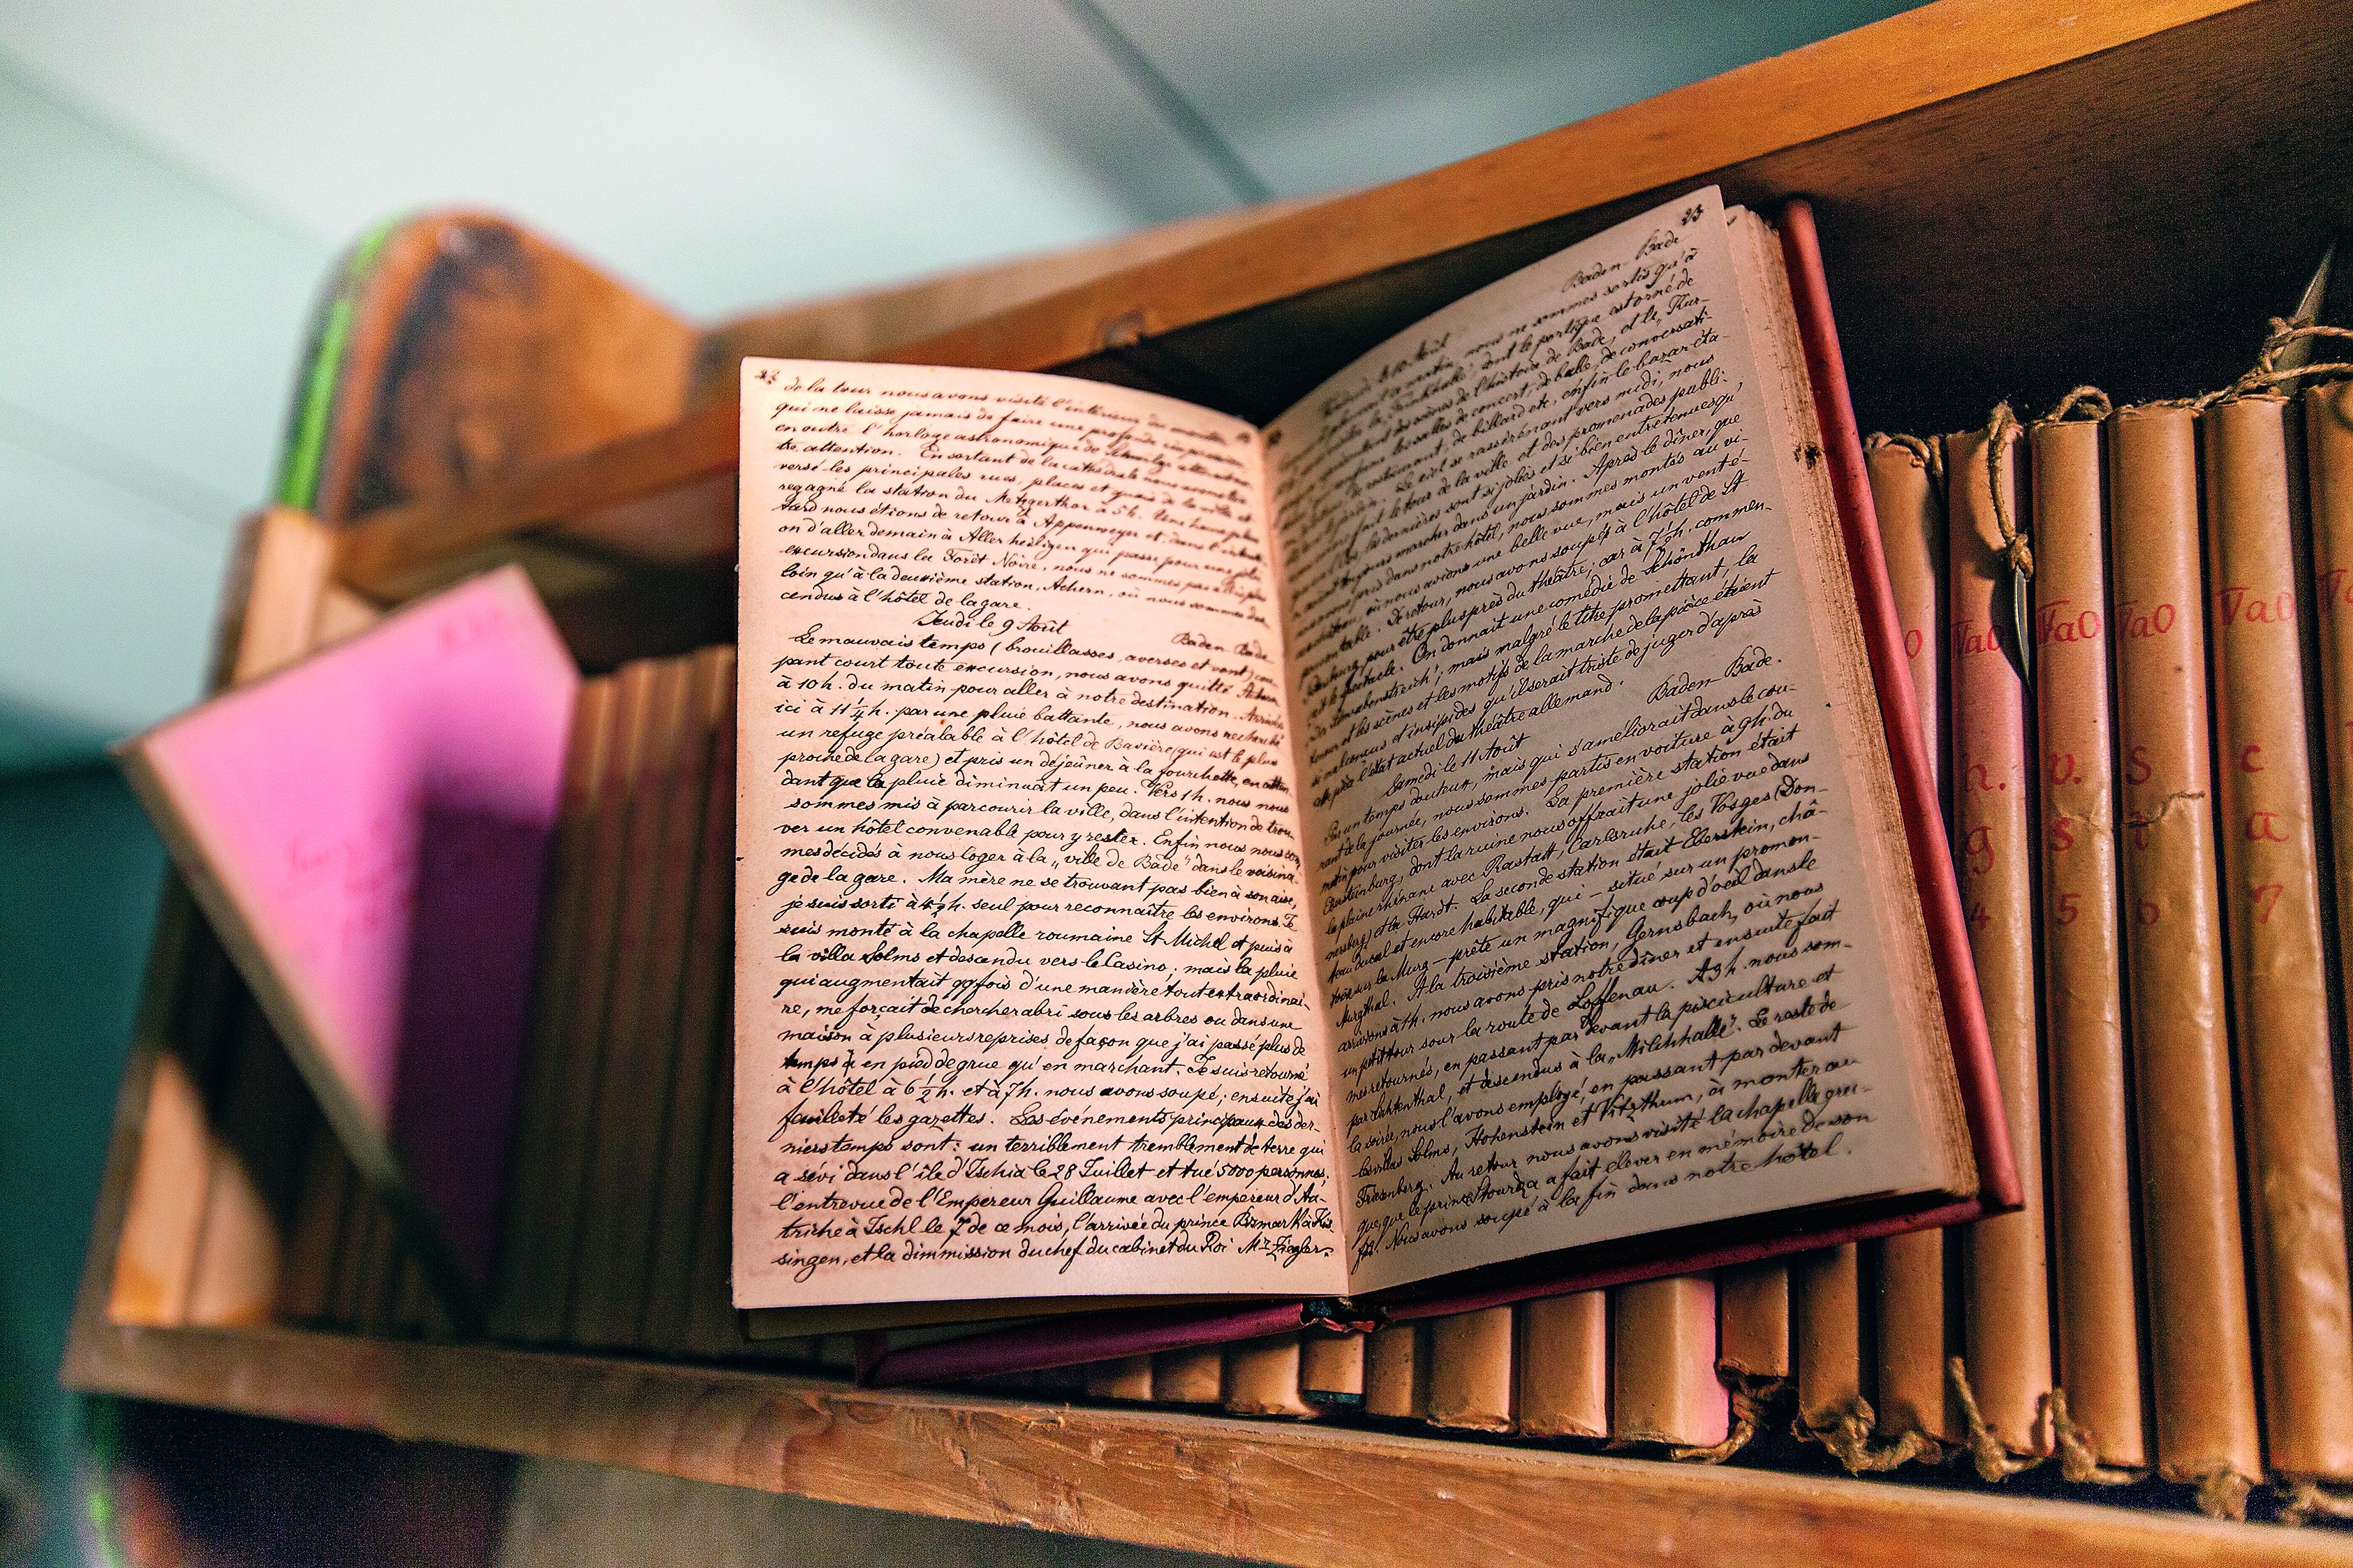 22
de la tour nous avons visité l'intérieur du
qui ne laisse jamais de faire une profonde impression,
en outre l'horloge astronomique de Schwilgé
tre attention. En sortant de la cathédrale nous avons
versé les principales rues, places et quais de la ville et
regagné la station du Metzgerthor à 5 h. Une heure plus
tard nous étions de retour à Appenweyer et, dans l'
on d'aller demain à Allerheiligen qui passe pour une jolie
excursion dans la Forêt Noire, nous ne sommes pas allés plus
loin qu'à la deuxième station, Achern, où nous sommes des-
cendus à l'hôtel de la gare.
Jeudi le 9 Août
Baden-Bade
Le mauvais temps (brouillasses, averses et vent) cou-
pant court toute excursion, nous avons quitté Achern
à 10 h. du matin pour aller à notre destination. Arrivés
ici à 11 1/4 h. par une pluie battante, nous avons recherché
un refuge préalable à l'hôtel de Bavière (qui est le plus
proche de la gare) et pris un déjeûner à la fourchette, en atten-
dant que la pluie diminuât un peu. Vers 1 h. nous nous
sommes mis à parcourir la ville, dans l'intention de trou-
ver un hôtel convenable pour y rester. Enfin nous nous som-
mes décidés à nous loger à la „ville de Bade" dans le voisina-
ge de la gare. Ma mère ne se trouvant pas bien à son aise,
je suis sorti à 4 1/2 h. seul pour reconnaître les environs. Je
suis monté à la chapelle roumaine St Michel et puis à
la villa Solms et descendu vers le Casino; mais la pluie
qui augmentait qqfois d'une manière tout extraordinai-
re, me forçait de chercher abri sous les arbres ou dans une
maison à plusieurs reprises de façon que j'ai passé plus de
temps à en pied de grue qu'en marchant. Je suis retourné
à l'hôtel à 6 1/2 h. et à 7 h. nous avons soupé; ensuite j'ai
feuilleté les gazettes. Les événements principaux des der-
niers temps sont: un terriblement tremblement de terre qui
a sévi dans l'île d'Ischia le 28 Juillet et tué 5000 personnes,
l'entrevue de l'Empereur Guillaume avec l'empereur d'Au-
triche à Ischl le 7 de ce mois, l'arrivée du prince Bismark à Kis-
singen, et la dimmission du chef du cabinet du Roi Mr Ziegler.
23
Baden-Bade
le 10 Août
nous ne sommes sortis qu'à
dont le portique est orné de
scènes de l'histoire de Bade, et le „Kur-
salles de concert, de balle, de conversati-
de restaurant, de billard etc, enfin le bazar éta-
Le ciel se rassérénant vers midi, nous
fait le tour de la ville et des promenades publi-
dernières sont si jolies et si bien entretenues qu'
toujours marcher dans un jardin. Après le dîner, que
pris dans notre hôtel, nous sommes montés au vi-
où nous avions une belle vue, mais un vent é-
De retour, nous avons soupé à l'hôtel de St
pour être plus près du théâtre; car à 7 1/2 h. commen-
le spectacle. On donnait une comédie de Schönthan
mais malgré le titre promettant, la
et les scènes et les motifs de la marche de la pièce étaient
et insipides qu'il serait triste de juger d'après
l'état actuel du théâtre allemand.
Samedi le 11 Août
Baden-Bade.
Par un temps douteux, mais qui s'améliorait dans le cou-
rant de la journée, nous sommes partis en voiture à 9 h. du
matin pour visiter les environs. La première station était
dont la ruine nous offrait une jolie vue dans
la plaine rhénane avec Rastatt, Carlsruhe, les Vosges (Don-
et la Hardt. La seconde station était Eberstein, châ-
teau ducal et encore habitable, qui – situé sur un promon-
toire sur la Murg – prête un magnifique coup d'oeil dans le
Murgthal. A la troisième station, Gernsbach, où nous
arrivons à 1 h. nous avons pris notre dîner et ensuite fait
un petit tour sur la route de Loffenau. A 3 h. nous som-
mes retournés, en passant par devant la pisciculture et
par Lichtenthal, et descendus à la „Milchhalle". Le reste de
la soirée, nous l'avons employé, en passant par devant
les villas Solms, Hohenstein et Vitzthum, à monter au
Friesenberg. Au retour nous avons visité la chapelle grec-
que, que le prince Stourdza a fait élever en mémoire de son
fils. Nous avons soupé à la fin dans notre hôtel.
TaO TaO TaO TaO
h. v. S c
g s t a
4 5 6 7